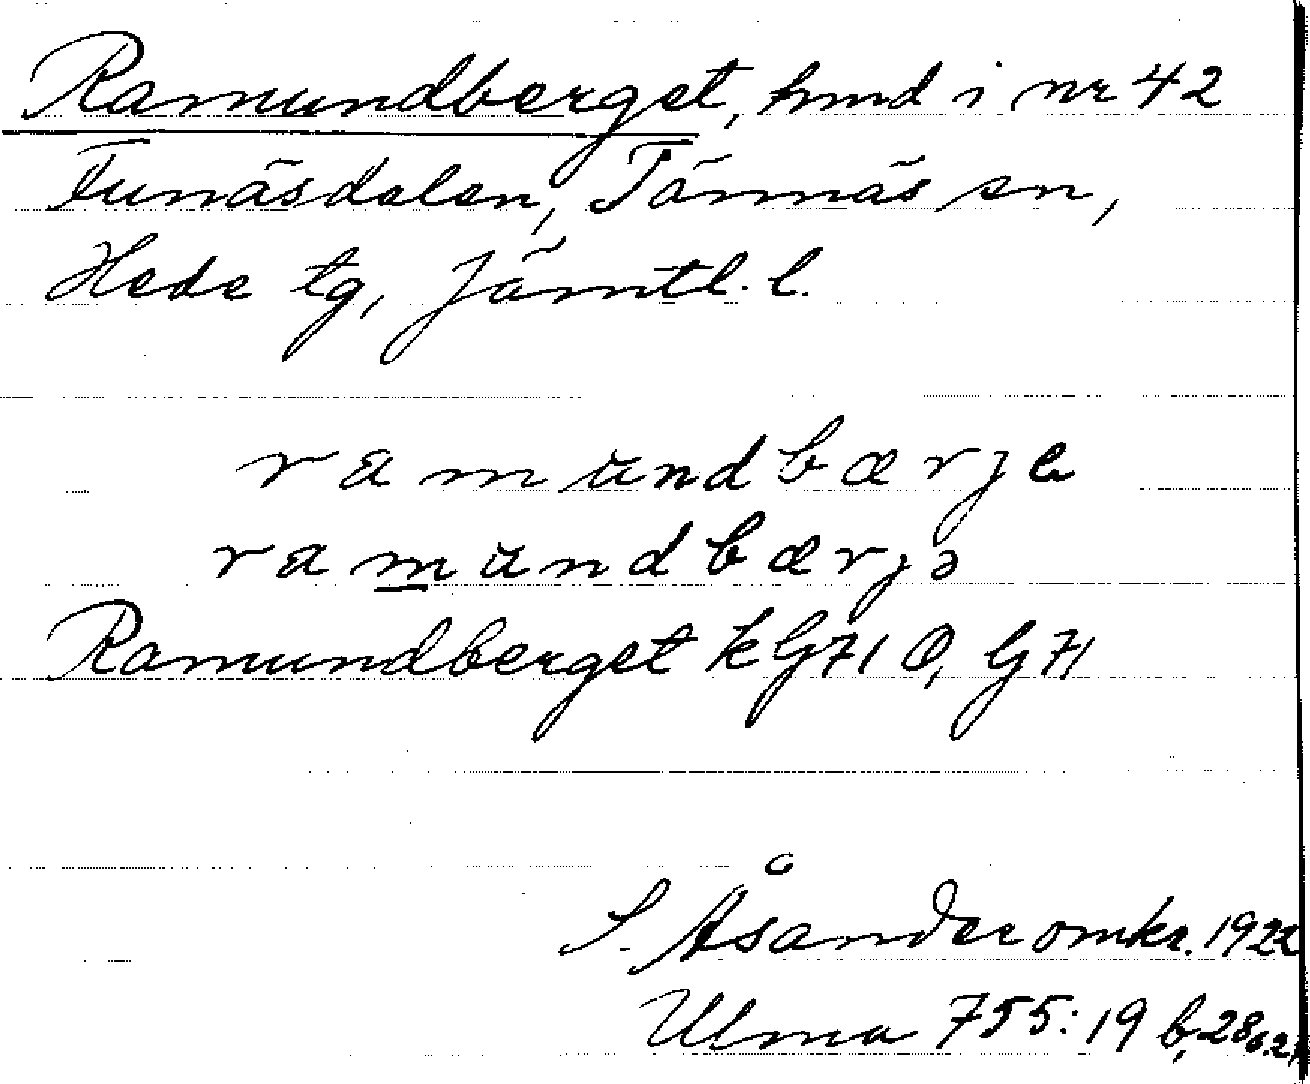 Ramundberget, hmd i nr 42
Funäsdalen, Tännäs sn,
Hede tg, Jämtl. l.
ramundbærje
ramundbærjə
Ramundberget k G71 O, G71
S. Åsander omkr. 1922
Ulma 755: 19 b, 28